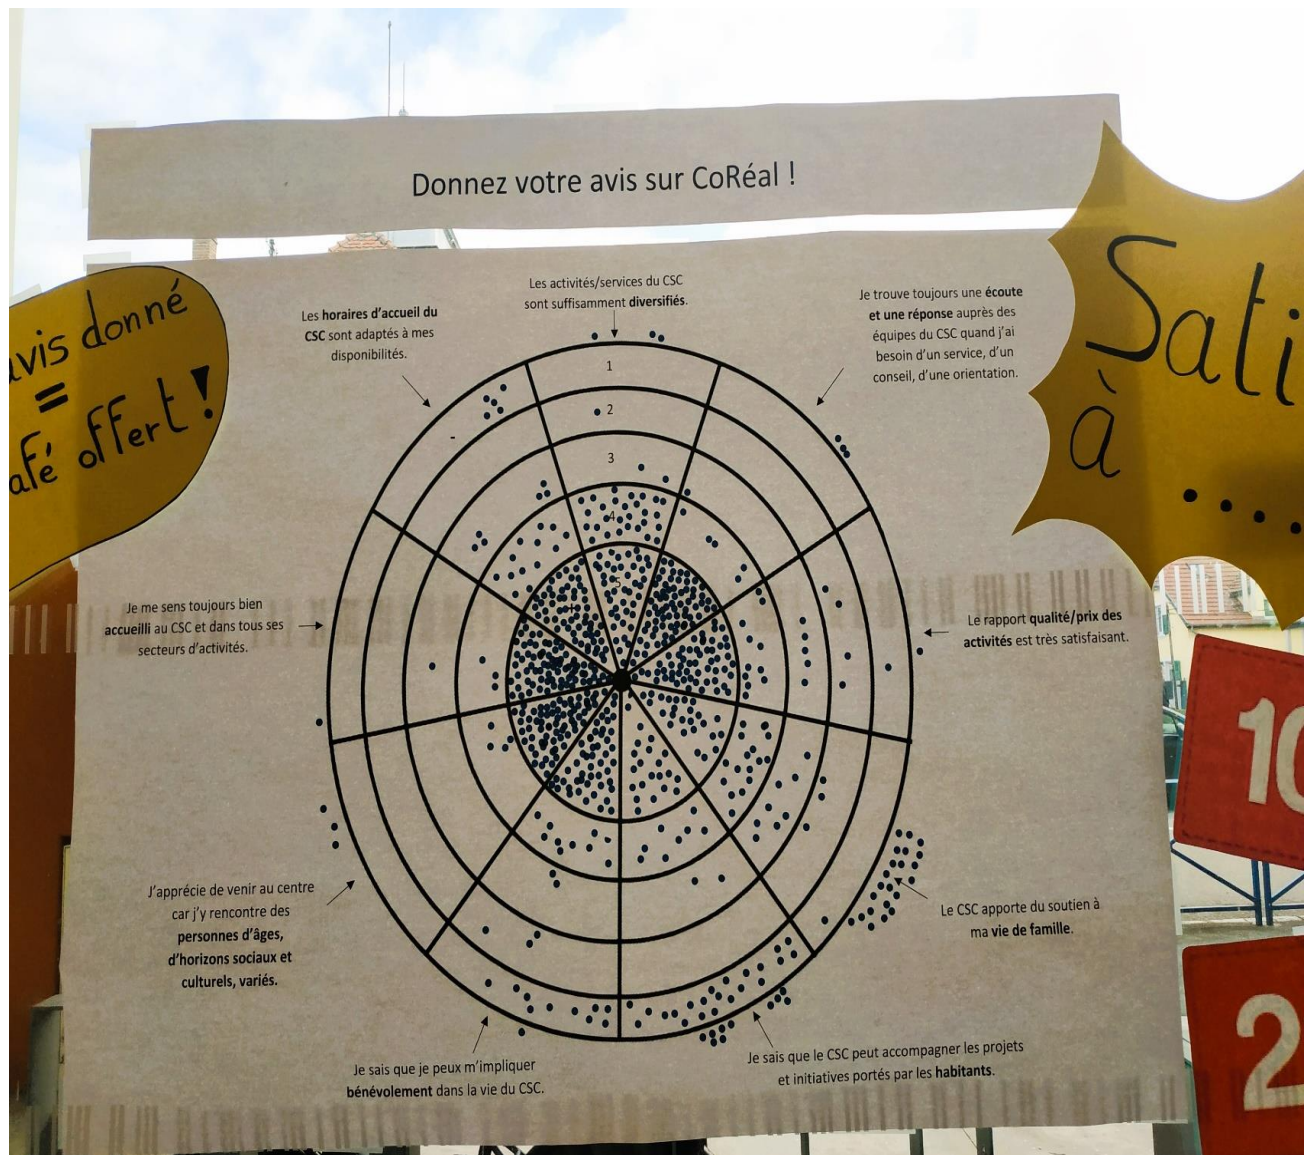 Donnez votre avis sur CoRéal !
avis donné
=
café offert !
Sati
à ....
Les horaires d'accueil du
CSC sont adaptés à mes
disponibilités.
Les activités/services du CSC
sont suffisamment diversifiés.
Je trouve toujours une écoute
et une réponse auprès des
équipes du CSC quand j'ai
besoin d'un service, d'un
conseil, d'une orientation.
1
2
3
4
5
Je me sens toujours bien
accueilli au CSC et dans tous ses
secteurs d'activités.
Le rapport qualité/prix des
activités est très satisfaisant.
J'apprécie de venir au centre
car j'y rencontre des
personnes d'âges,
d'horizons sociaux et
culturels, variés.
Le CSC apporte du soutien à
ma vie de famille.
Je sais que je peux m'impliquer
bénévolement dans la vie du CSC.
Je sais que le CSC peut accompagner les projets
et initiatives portés par les habitants.
10
2